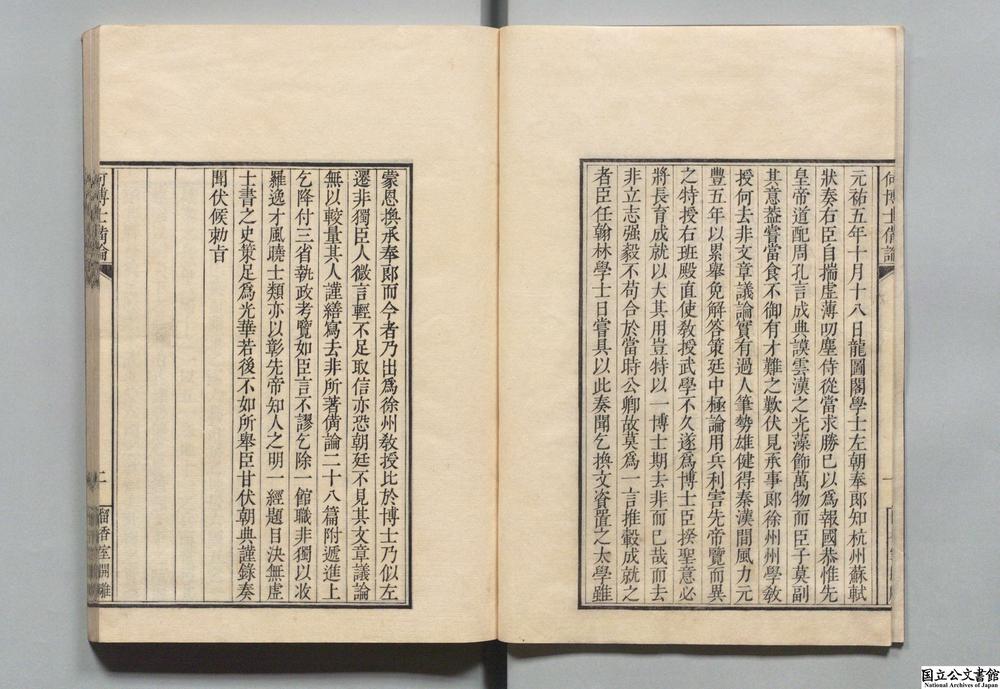 元祐五年十月十八日龍圖閣學士左朝奉郎知杭州蘇軾
狀奏右臣自揣虛薄叨塵侍從當求勝已以爲報國恭惟先
皇帝道配周孔言成典謨雲漢之光藻飾萬物而臣子莫副
其意蓋嘗當食不御有才難之歎伏見承事郎徐州州學敎
授何去非文章議論實有過人筆勢雄健得秦漢間風力元
豐五年以累舉免解答策廷中極論用兵利害先帝覽而異
之特授右班殿直使敎授武學不久遂爲博士臣揆聖意必
將長育成就以大其用豈特以一博士期去非而已哉而去
非立志强毅不苟合於當時公卿故莫爲一言推轂成就之
者臣任翰林學士日嘗具以此奏聞乞換文資置之太學雖
何博士備論
一
蒙恩換承奉郎而今者乃出爲徐州敎授比於博士乃似左
遷非獨臣人微言輕不足取信亦恐朝廷不見其文章議論
無以較量其人謹繕寫去非所著備論二十八篇附遞進上
乞降付三省執政考覽如臣言不謬乞除一館職非獨以收
羅逸才風曉士類亦以彰先帝知人之明一經題目決無虛
士書之史策足爲光華若後不如所舉臣甘伏朝典謹錄奏
聞伏候勅旨
何博士備論
二
留香室開雕
国立公文書館
National Archives of Japan